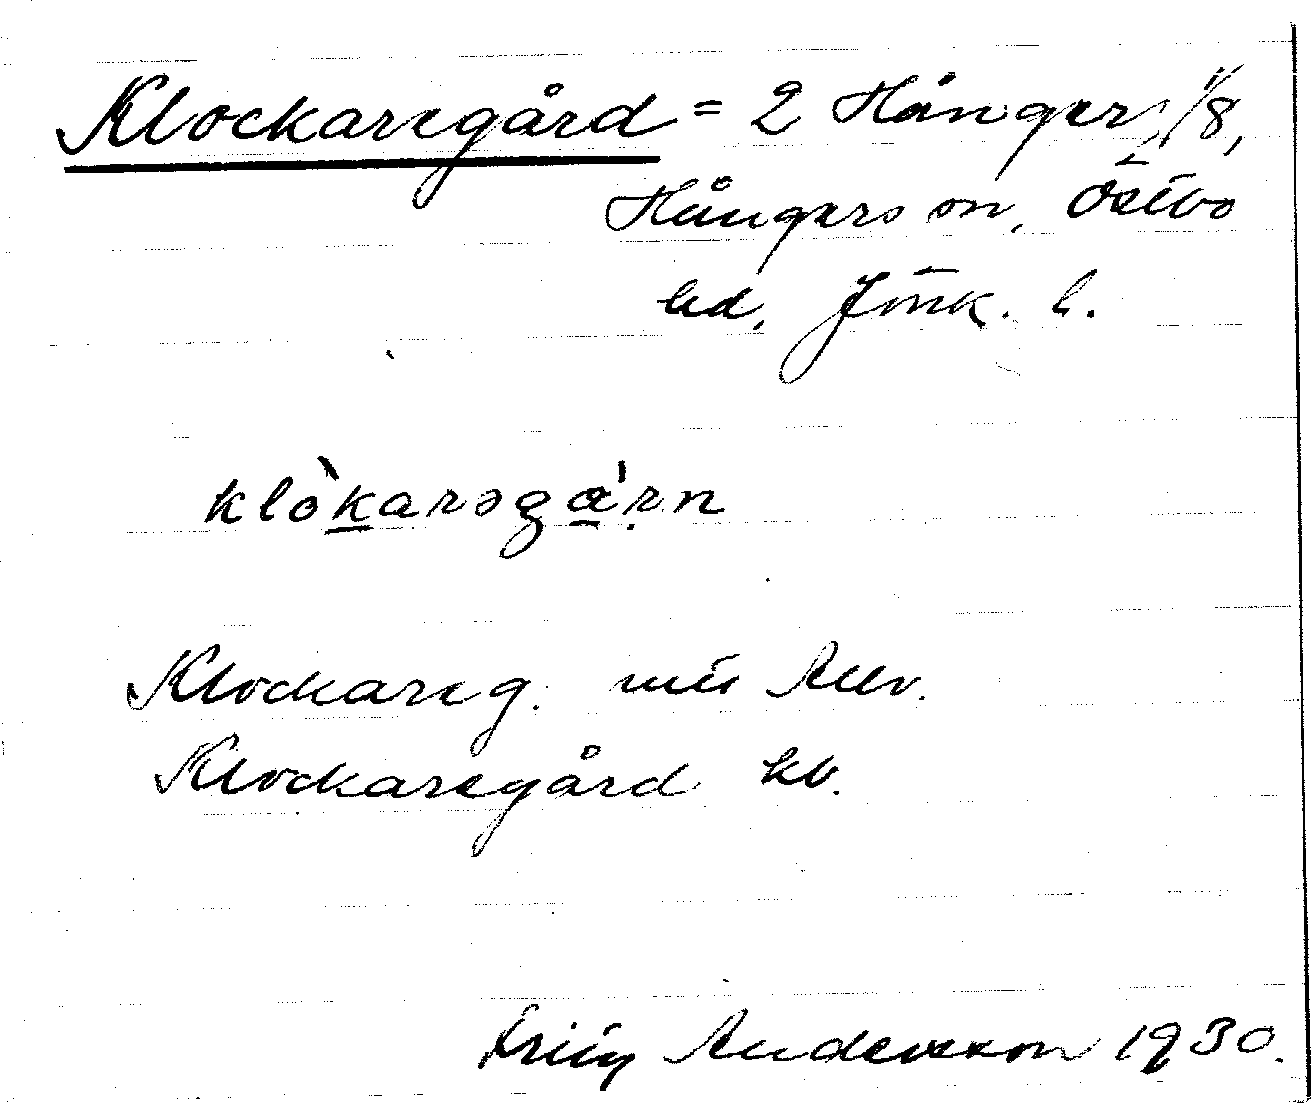 Klockaregård = 2 Hånger, 1/8,
Hångers sn, Östbo
hd, Jönk. l.
klo̊̀karəgɑ́rn
Klockareg. mtl
Klockaregård kb.
Andersson 1930.